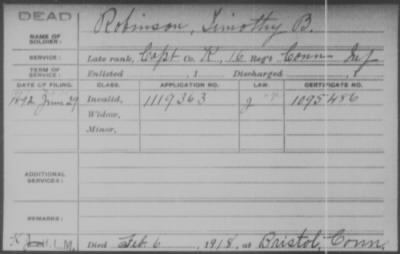 DEAD
NAME OF SOLDIER: Robinson, Timothy B.
SERVICE: Late rank, Capt Co. K, 16 Reg't Conn Inf
TERM OF SERVICE: Enlisted , 1 Discharged , 1
DATE OF FILING. CLASS. APPLICATION NO. LAW. CERTIFICATE NO.
1892 June 29 Invalid, 1119363 1095486
Widow,
Minor,
ADDITIONAL SERVICES:
REMARKS:
Died Feb 6, 1918, at Bristol, Conn.